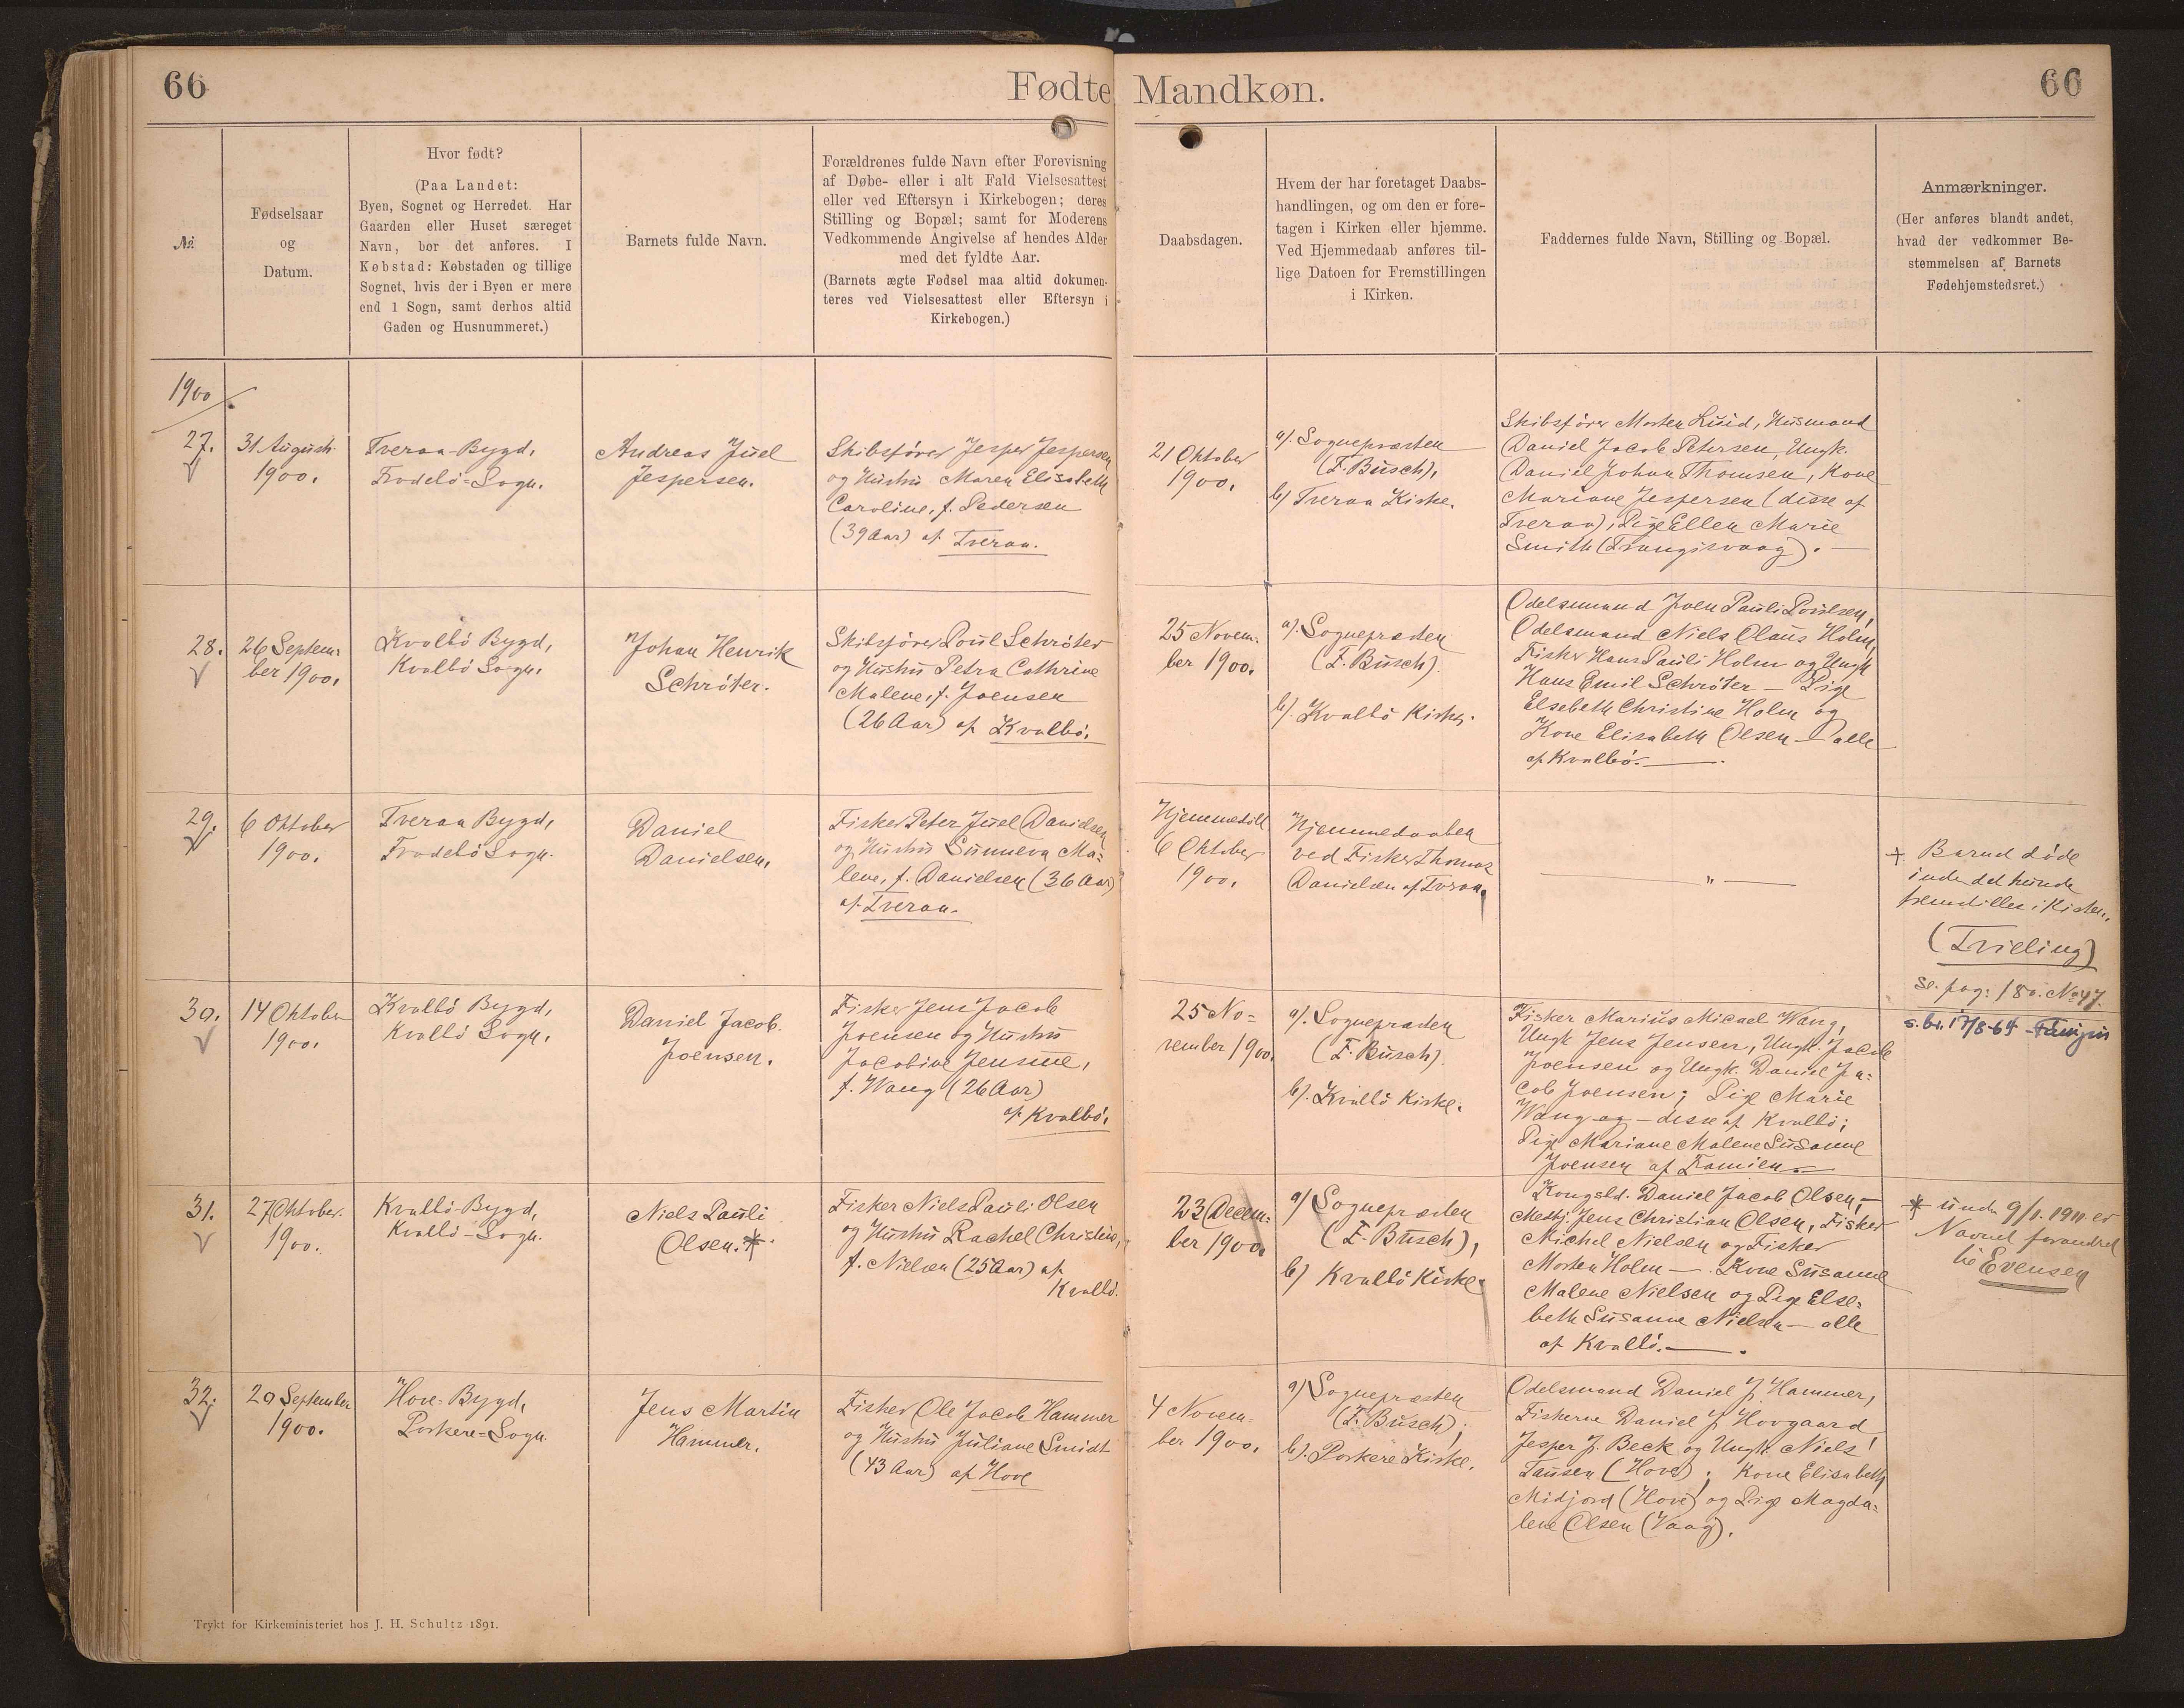 66
Fødte Mandkøn.
66
№
Fødselsaar
og
Datum.
Hvor født?
(Paa Landet:
Byen, Sognet og Herredet. Har
Gaarden eller Huset særeget
Navn, bør det anføres. I
Købstad: Købstaden og tillige
Sognet, hvis der i Byen er mere
end 1 Sogn, samt derhos altid
Gaden og Husnummeret.)
Barnets fulde Navn.
Forældrenes fulde Navn efter Forevisning
af Døbe- eller i alt Fald Vielsesattest
eller ved Eftersyn i Kirkebogen; deres
Stilling og Bopæl; samt for Moderens
Vedkommende Angivelse af hendes Alder
med det fyldte Aar.
(Barnets ægte Fødsel maa altid dokumen-
teres ved Vielsesattest eller Eftersyn i
Kirkebogen.)
Daabsdagen.
Hvem der har foretaget Daabs-
handlingen, og om den er fore-
tagen i Kirken eller hjemme.
Ved Hjemmedaab anføres til-
lige Datoen for Fremstillingen
i Kirken.
Faddernes fulde Navn, Stilling og Bopæl.
Anmærkninger.
(Her anføres blandt andet,
hvad der vedkommer Be-
stemmelsen af Barnets
Fødehjemstedsret.)
1900
27.
31 August
1900.
Tveraa Bygd,
Frodebö-Sogn.
Andreas Juel
Jespersen.
Skibsfører Jesper Jespersen
og Hustru Maren Elisabeth
Caroline, f. Pedersen
(39 Aar) af Tveraa.
21 Oktober
1900.
a). Sognepræsten
(F. Busch),
b) Tveraa Kirke.
Skibsfører Morten Luid, Husmand
Daniel Jacob Petersen, Ungk.
Daniel Johan Thomsen, Kone
Mariane Jespersen (disse af
Tveraa), Pige Ellen Marie
Smith (Trangisvaag).
28.
26 Septem-
ber 1900.
Kvalbö Bygd,
Kvalbö Sogn.
Johan Henrik
Schröter.
Skibsfører Poul Schröter
og Hustru Petra Cathrine
Malene, f. Joensen
(26 Aar) af Kvalbö.
25 Novem-
ber 1900.
a). Sognepræsten
(F. Busch).
b). Kvalbö Kirke.
Odelsmand Joen Pauli Poulsen,
Odelsmand Niels Olaus Holm,
Fisker Hans Pauli Holm og Ungk
Hans Emil Schröter — Pige
Elsebeth Christine Holm og
Kone Elisabeth Olsen — alle
af Kvalbö.
29.
6 Oktober
1900.
Tveraa Bygd,
Frodebö Sogn.
Daniel
Danielsen.
Fisker Peter Juel Danielsen
og Hustru Sunneva Ma-
lene, f. Danielsen (36 Aar)
af Tveraa.
Hjemmedöbt
6 Oktober
1900.
Hjemmedaaben
ved Fisker Thomas
Danielsen af Tveraa.
— " —
+ Barnet döde
inden det kunde
fremstilles i Kirken.
(Tvilling)
Se. pag. 180. No 47.
30.
14 Oktober
1900.
Kvalbö Bygd,
Kvalbö Sogn.
Daniel Jacob
Joensen.
Fisker Jens Jacob
Joensen og Hustru
Jacobine Jensine,
f. Wang (26 Aar)
af Kvalbö.
25 No-
vember 1900.
a). Sognepræsten
(F. Busch).
b). Kvalbö Kirke.
Fisker Marius Micael Wang,
Ungk Jens Jensen, Ungk. Jacob
Joensen og Ungk. Daniel Ja-
cob Joensen; Pige Marie
Wang og — disse af Kvalbö;
Pige Mariane Malene Susanne
Joensen af Famien.
s. br. 17/8-64
31.
27 Oktober.
1900.
Kvalbö-Bygd,
Kvalbö-Sogn.
Niels Pauli
Olsen. *
Fisker Niels Pauli Olsen
og Hustru Rachel Christine,
f. Nielsen (25 Aar) af
Kvalbö.
23 Decem-
ber 1900.
a) Sognepræsten
(F. Busch),
b) Kvalbö Kirke.
Kongsld. Daniel Jacob Olsen,
Jens Christian Olsen, Fisker
Michel Nielsen og Fisker
Morten Holm — Kone Susanne
Malene Nielsen og Pige Else-
beth Susanne Nielsen — alle
af Kvalbö.
* under 9/1. 1911 er
Navnet forandret
til Evensen
32.
20 September
1900.
Hove-Bygd,
Porkere-Sogn.
Jens Martin
Hammer.
Fisker Ole Jacob Hammer
og Hustru Juliane Smidt
(43 Aar) af Hove
4 Novem-
ber 1900.
a) Sognepræsten
(F. Busch);
b). Porkere Kirke.
Odelsmand Daniel J. Hammer,
Fiskerne Daniel J. Hovgaard
Jesper J. Beck og Ungk. Niels
Tausen (Hove); Kone Elisabeth
Midjord (Hove) og Pige Magda-
lene Olsen (Vaag).
Trykt for Kirkeministeriet hos J. H. Schultz 1891.